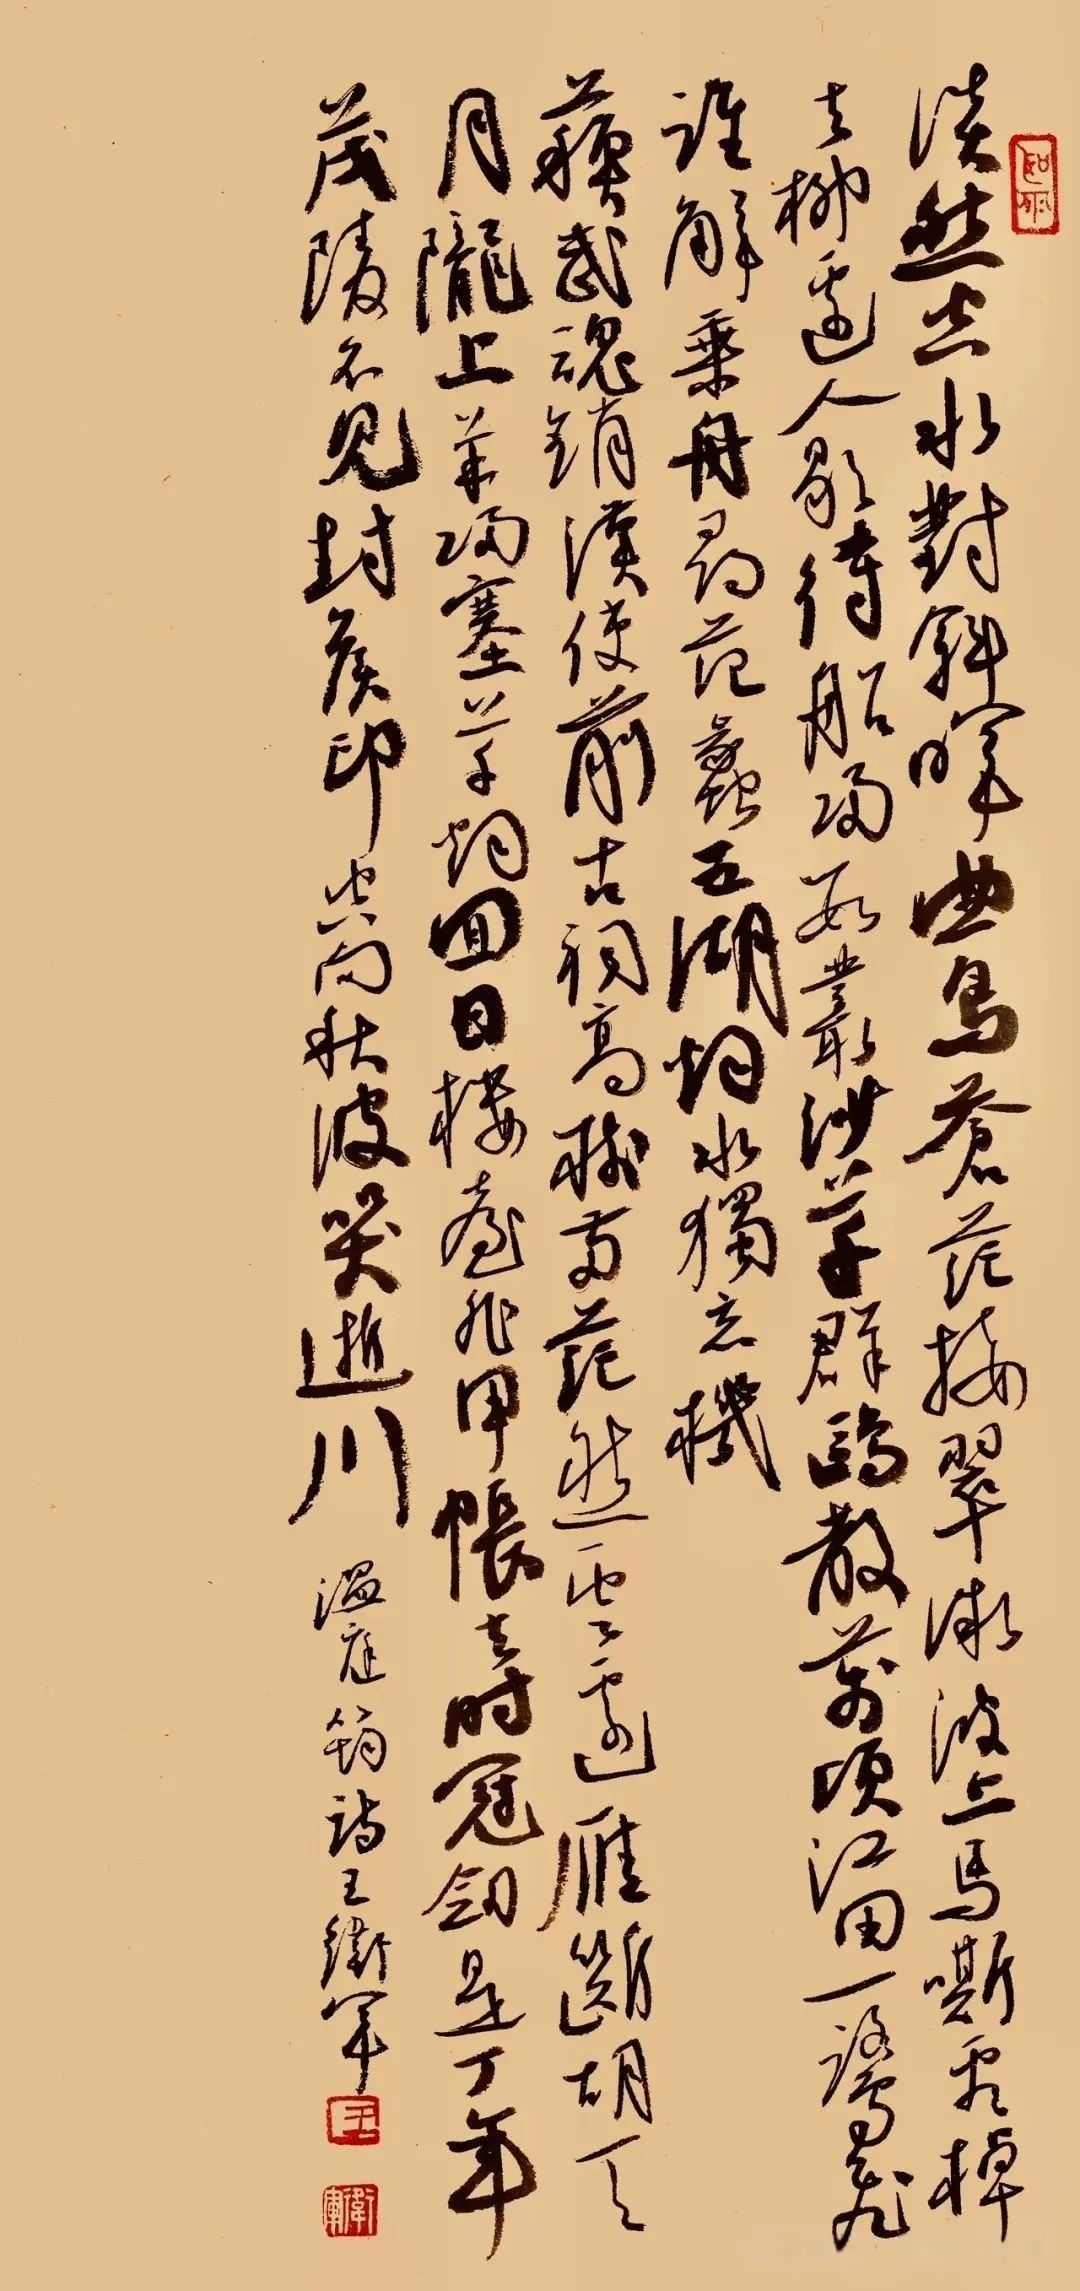 淡然空水對斜暉曲島蒼茫接翠微波上馬嘶看棹
去柳邊人歇待船歸數叢沙草群鷗散萬頃江田一鷺飛
誰解乘舟尋范蠡五湖烟水獨忘機
蘇武魂銷漢使前古祠高樹兩茫然雲邊雁斷胡天
月隴上羊歸塞草烟回日樓臺非甲帳去時冠劍是丁年
茂陵不見封侯印空向秋波哭逝川
溫庭筠詩王衛軍
王
衛軍